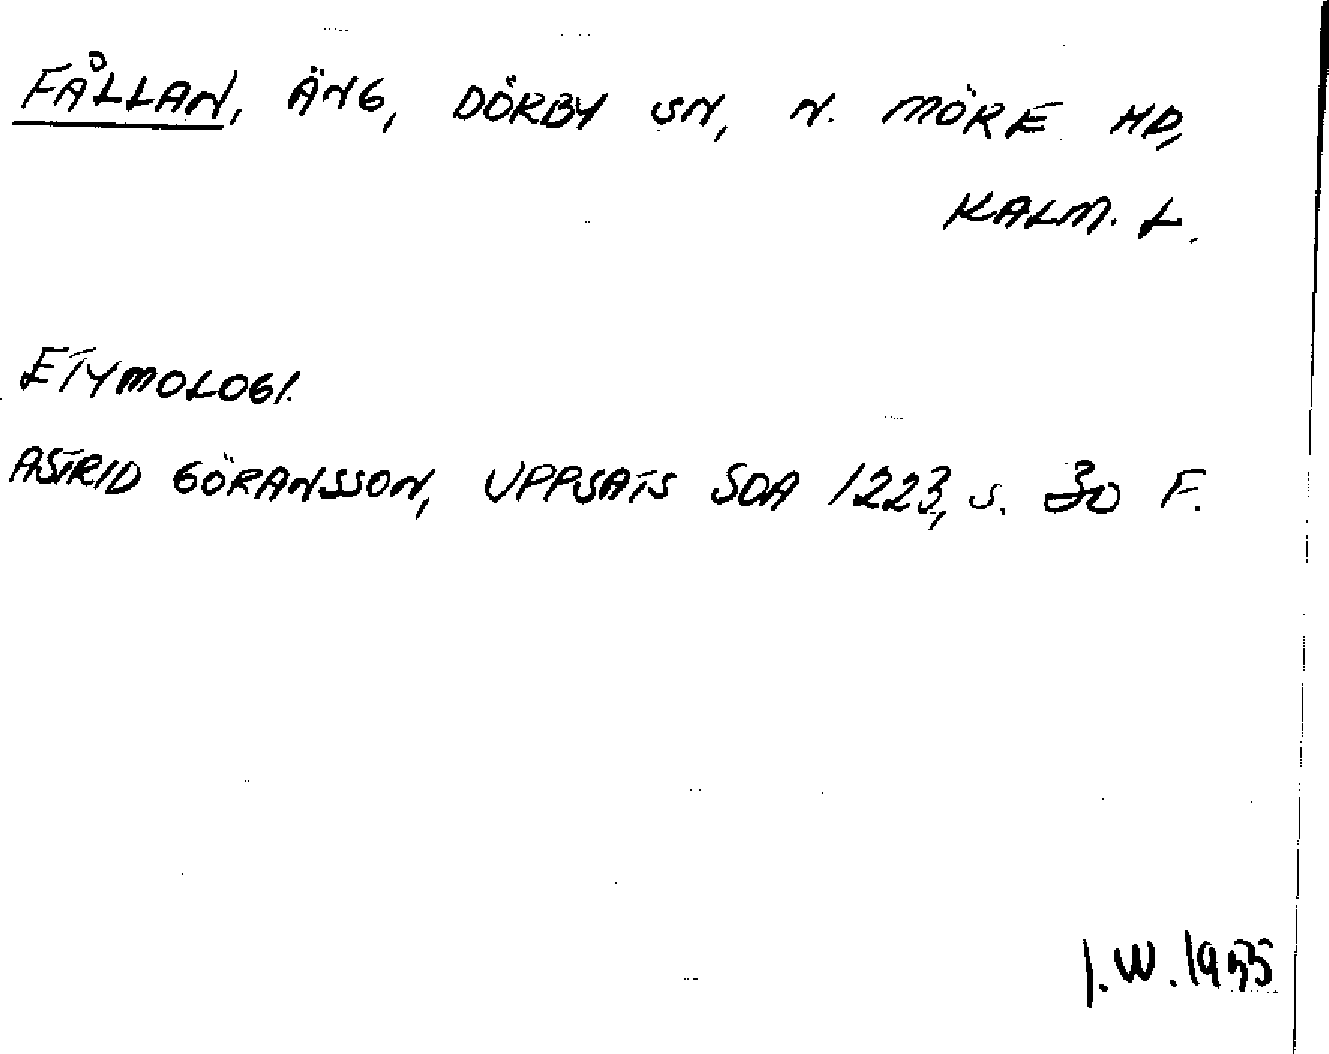 FÅLLAN, ÄNG, DÖRBY SN, N. MÖRE HD,
KALM. L.
ETYMOLOGI.
ASTRID GÖRANSSON, UPPSATS SOA 1223, S. 30 F.
I.W. 1955